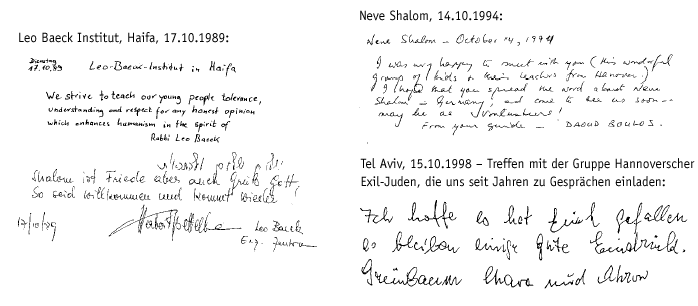 Leo Baeck Institut, Haifa, 17.10.1989:
Dienstag
17.10.89
Leo-Baeck-Institut in Haifa
We strive to teach our young people tolerance,
understanding and respect for any honest opinion
which enhances humanism in the spirit of
Rabbi Leo Baeck
Shalom ist Friede aber auch Grüß Gott
So seid willkommen und kommt wieder!
17/10/89
Leo Baeck
Neve Shalom, 14.10.1994:
Neve Shalom – October 14, 1994
I was very happy to meet with you (this wonderful
group of kids & their teachers from Hannover.)
I hope that you spread the word about Neve
Shalom in Germany! and come to see us soon –
may be as volunteers!
From your guide – DAOUD BOULOS.
Tel Aviv, 15.10.1998 – Treffen mit der Gruppe Hannoverscher
Exil-Juden, die uns seit Jahren zu Gesprächen einladen:
Ich hoffe es hat Euch gefallen
es bleiben einige gute Eindrück.
Grünbaum Chava und Ahron